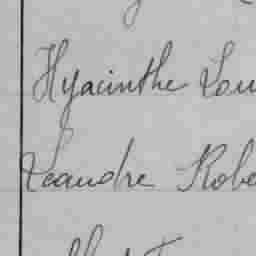 Hyacinthe Lou
Léandre Robe